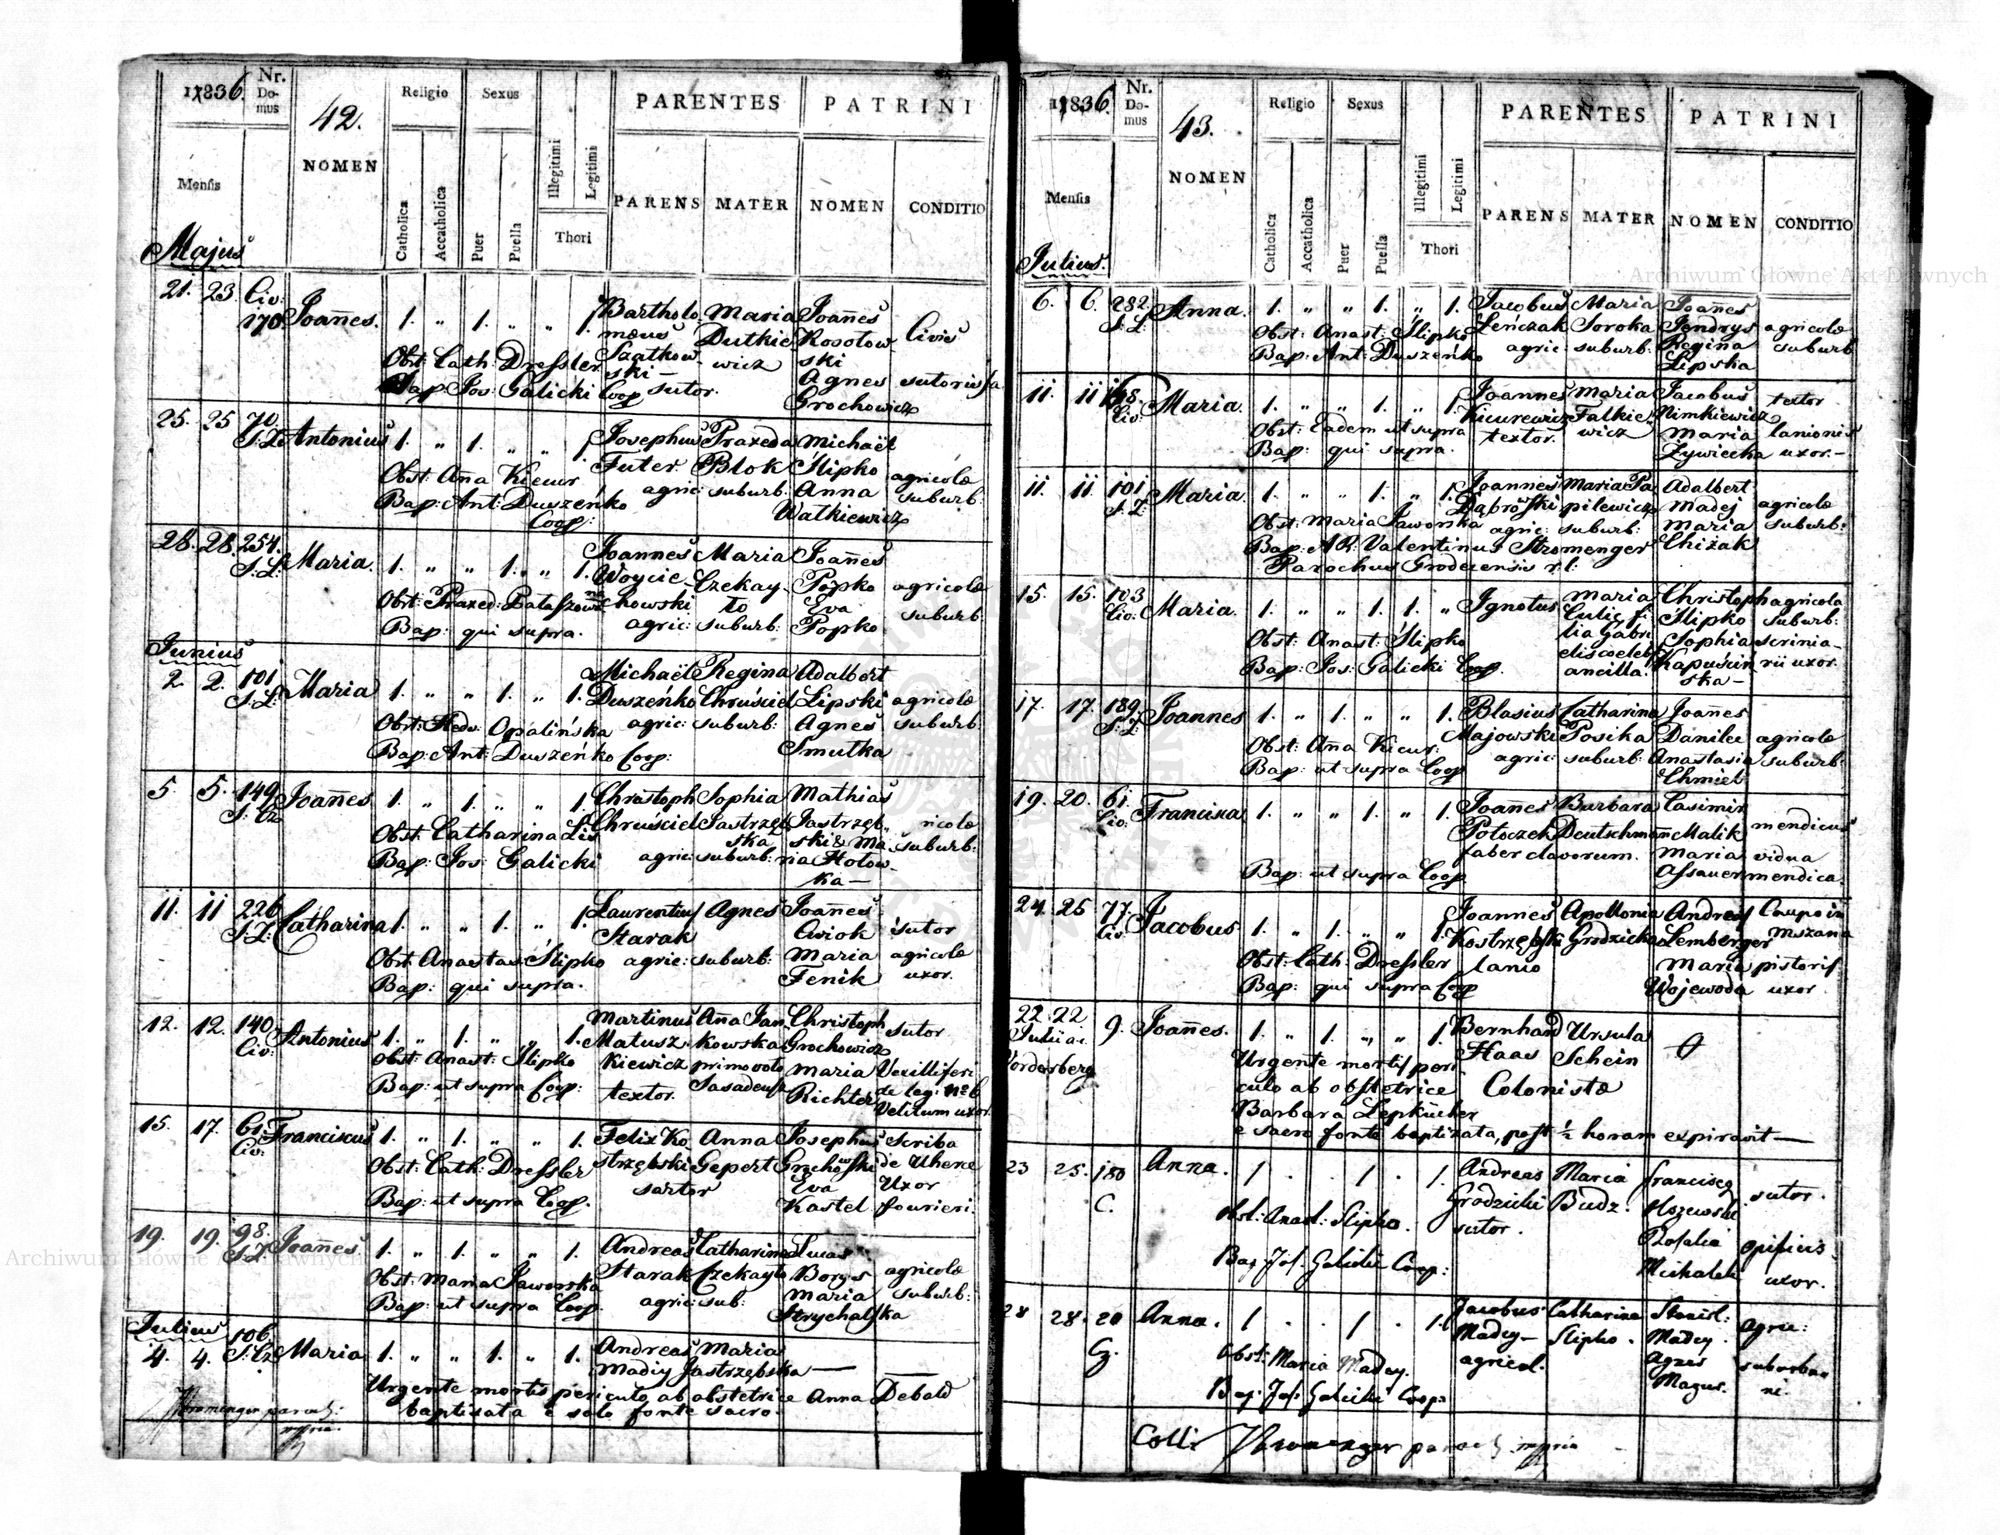 1836.
Nr. Domus
42.
Religio
Sexus
PARENTES
PATRINI
NOMEN
Mensis
Catholica
Accatholica
Puer
Puella
Illegitimi
Legitimi
Thori
PARENS
MATER
NOMEN
CONDITIO
Majus
21. 23. Civ: Joannes. 1. „ 1. „ „ 1. Bartholo Maria Joannes
170 mæus Dutkie Kosotow Civis
Szatkow wicz ski
Obst: Cath: Dressler ski — Agnes sutoris fa
Bap: Jos: Galicki Coop sutor. Grochowicz
25. 25 70. Antonius 1. „ 1. „ „ 1. Josephus Praxeda Michaël
Futer Blok Slipko agricolæ
Obst: Aña Kicur agric: suburb: Anna suburb:
Bap: Ant: Duszeńko Watkiewicz
Coop:
28. 28. 254. Maria. 1. „ „ 1. „ 1. Joannes Maria Joañes
Woycie Czekay Popko agricolæ
Obst: Praxed: chowski to Eva suburb:
Bap: qui supra. agric: suburb: Popko
Junius
2. 2. 101 Maria 1. „ „ 1. „ 1. Michaël Regina Adalbert
Duszeńko Chruściel Lipski agricolæ
Obst: Hedv: Opalińska agric: suburb: Agnes suburb:
Bap: Ant: Duszeńko Coop: Smutka
5. 5. 149 Joañes 1. „ 1. „ „ 1. Christoph Sophia Mathias
Obst: Catharina Lis Chruściel Jastrzęb Jastrzęb ricolæ
ska ski & Ma suburb:
Bap: Jos: Galicki agric: suburb: ria Hotow
ka —
11. 11 226 Catharina 1. „ „ 1. „ 1. Laurentius Agnes Joañes
Starak Cwiok sutor
Obst: Anastas: Slipko agric: suburb: Maria agricolæ
Bap: qui supra. Fenik uxor.
12. 12. 140 Antonius 1. „ 1. „ „ 1. Martinus Aña Jan Christoph
Civ: Matusz kowska Grochowicz sutor
Obst: Anast: Slipko kiewicz primovoto Maria Vexilliferi
Bap: ut supra Coop: textor. Richter de leg: No 6
Velitum uxor.
15. 17. 61. Franciscus 1. „ 1. „ „ 1. Felix Ko Anna Josephus Scriba
Civ: strzębski Gepert Grochowski de
Obst: Cath: Dressler sartor Eva Uxor
Bap: ut supra Coop. Kastel fourieri.
19. 19. 98. Joañes 1. „ 1. „ „ 1. Andreas Catharina Lucas
Starak Czekayto Borys agricolæ
Obst: Maria Jaworska agric: sub: Maria suburb:
Bap: ut supra Coop. Strychalska
Julius
4. 4. 106. Maria 1. „ „ 1. „ 1. Andreas Maria
Madiy Jastrzębska —
Urgente mortis periculo ab obstetrice Anna Debald
baptisata e solo fonte sacro.
Stromenger paroch:
mpria
1836.
Nr. Domus
43.
Religio
Sexus
PARENTES
PATRINI
NOMEN
Mensis
Catholica
Accatholica
Puer
Puella
Illegitimi
Legitimi
Thori
PARENS
MATER
NOMEN
CONDITIO
Julius.
6. 6. 282 Anna. 1. „ „ 1. „ 1. Jacobus Maria Joañes
Obst: Anast: Slipko Leńczak Soroka Jendrys agricolæ
Bap: Ant: Duszeńko agric: suburb: Regina suburb
Lipska
11. 11 168. Maria. 1. „ „ 1. „ 1. Joannes Maria Jacobus textor
Civ: Kicurewicz Falkie Nimkiewicz
Obst: Eadem ut supra textor. wicz Maria lanionis
Bap: qui supra. Zywiecka uxor. —
11. 11. 101 Maria 1. „ „ 1. „ 1. Joannes Maria Pa Adalbert
Dąbrowski pilewicz Madej agricolæ
Obst: Maria Jaworska agric: suburb: Maria suburb:
Bap: AR: Valentinus Stromenger Chiżak
Parochus Grodecensis r. l.
15. 15. 103 Maria. 1. „ „ 1. 1. „ Ignotus Maria Christoph agricola
Civ: Culic fi Slipko suburb:
Obst: Anast: Slipko lia Gabri Sophia scrinia
Bap: Jos: Galicki Coop. elis coeleb Kapuścin rii uxor.
ancilla. ska —
17. 17. 189. Joannes 1. „ 1. „ „ 1. Blasius Catharina Joañes
Majowski Posika Danilec agricolæ
Obst: Aña Kicur: agric: suburb: Anastasia suburb:
Bap: ut supra Coop Chmiel
19. 20. 61. Francisca 1. „ „ 1. „ 1. Joanes Barbara Casimir
Civ: Potoczek Deutschman Malik mendicus
faber clavorum. Maria vidua
Bap: ut supra Coop Assauer mendica.
24. 25 77. Jacobus 1. „ 1. „ „ 1. Joannes Apollonia Andreas Caupo in
Civ. Kostrzębski Grodzicka Lemberger Mszana
Obst: Cath: Dressler lanio Maria pistoris
Bap: qui supra Coop Wojewoda uxor
22 22 9. Joañes. 1. „ 1. „ „ 1. Bernhard Ursula
Julii a. i. Haas Schein
Vorderberg Urgente mortis peri
culo ab obstetrice Colonistæ
Barbara Lepkücher
e sacro fonte baptizata, post ½ horam expiravit —
23 25. 180 Anna. 1 . . 1 . 1. Andreas Maria Franciscus
C. Grodzicki Budz. sutor.
Obst: Anast: Slipko. sutor. Rosalia opificis
Bap: Jos: Galicki Coop: Michalek uxor.
28 28. 20 Anna. 1 . . 1 . 1. Jacobus Catharina Stanisl:
Madey — Slipko. Madey. agric:
Obst: Maria Madey. agricol. Agnes suburba
Bap: Jos: Galicki Coop: Magur. ni.
Coll: Stromenger paroch mpria
Archiwum Główne Akt Dawnych
Archiwum Główne Akt Dawnych